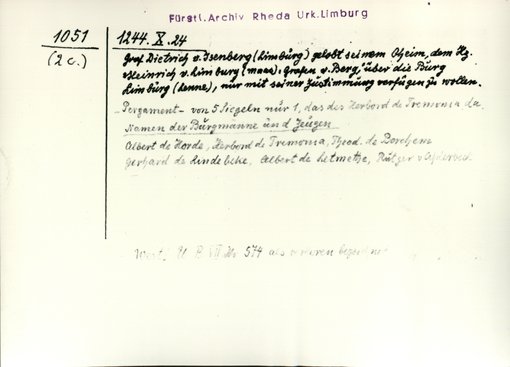 Fürstl. Archiv Rheda Urk. Limburg
1051
(2 c.)
1244. X. 24
Graf Dietrich v. Isenberg (Limburg) gelobt seinem Oheim, dem Hz.
Heinrich v. Limburg (Maas), Grafen v. Berg, über die Burg
Limburg (Lenne), nur mit seiner Zustimmung verfügen zu wollen.
Pergament - von 5 Siegeln nur 1, das des Herbord de Tremonia da
Namen der Burgmänner und Zeugen
Albert de Horde, Herbord de Tremonia, Theod. de
Gerhard de Lindebeke, Albert de Letmethe, Rütger v.
U B VII Nr. 574 als